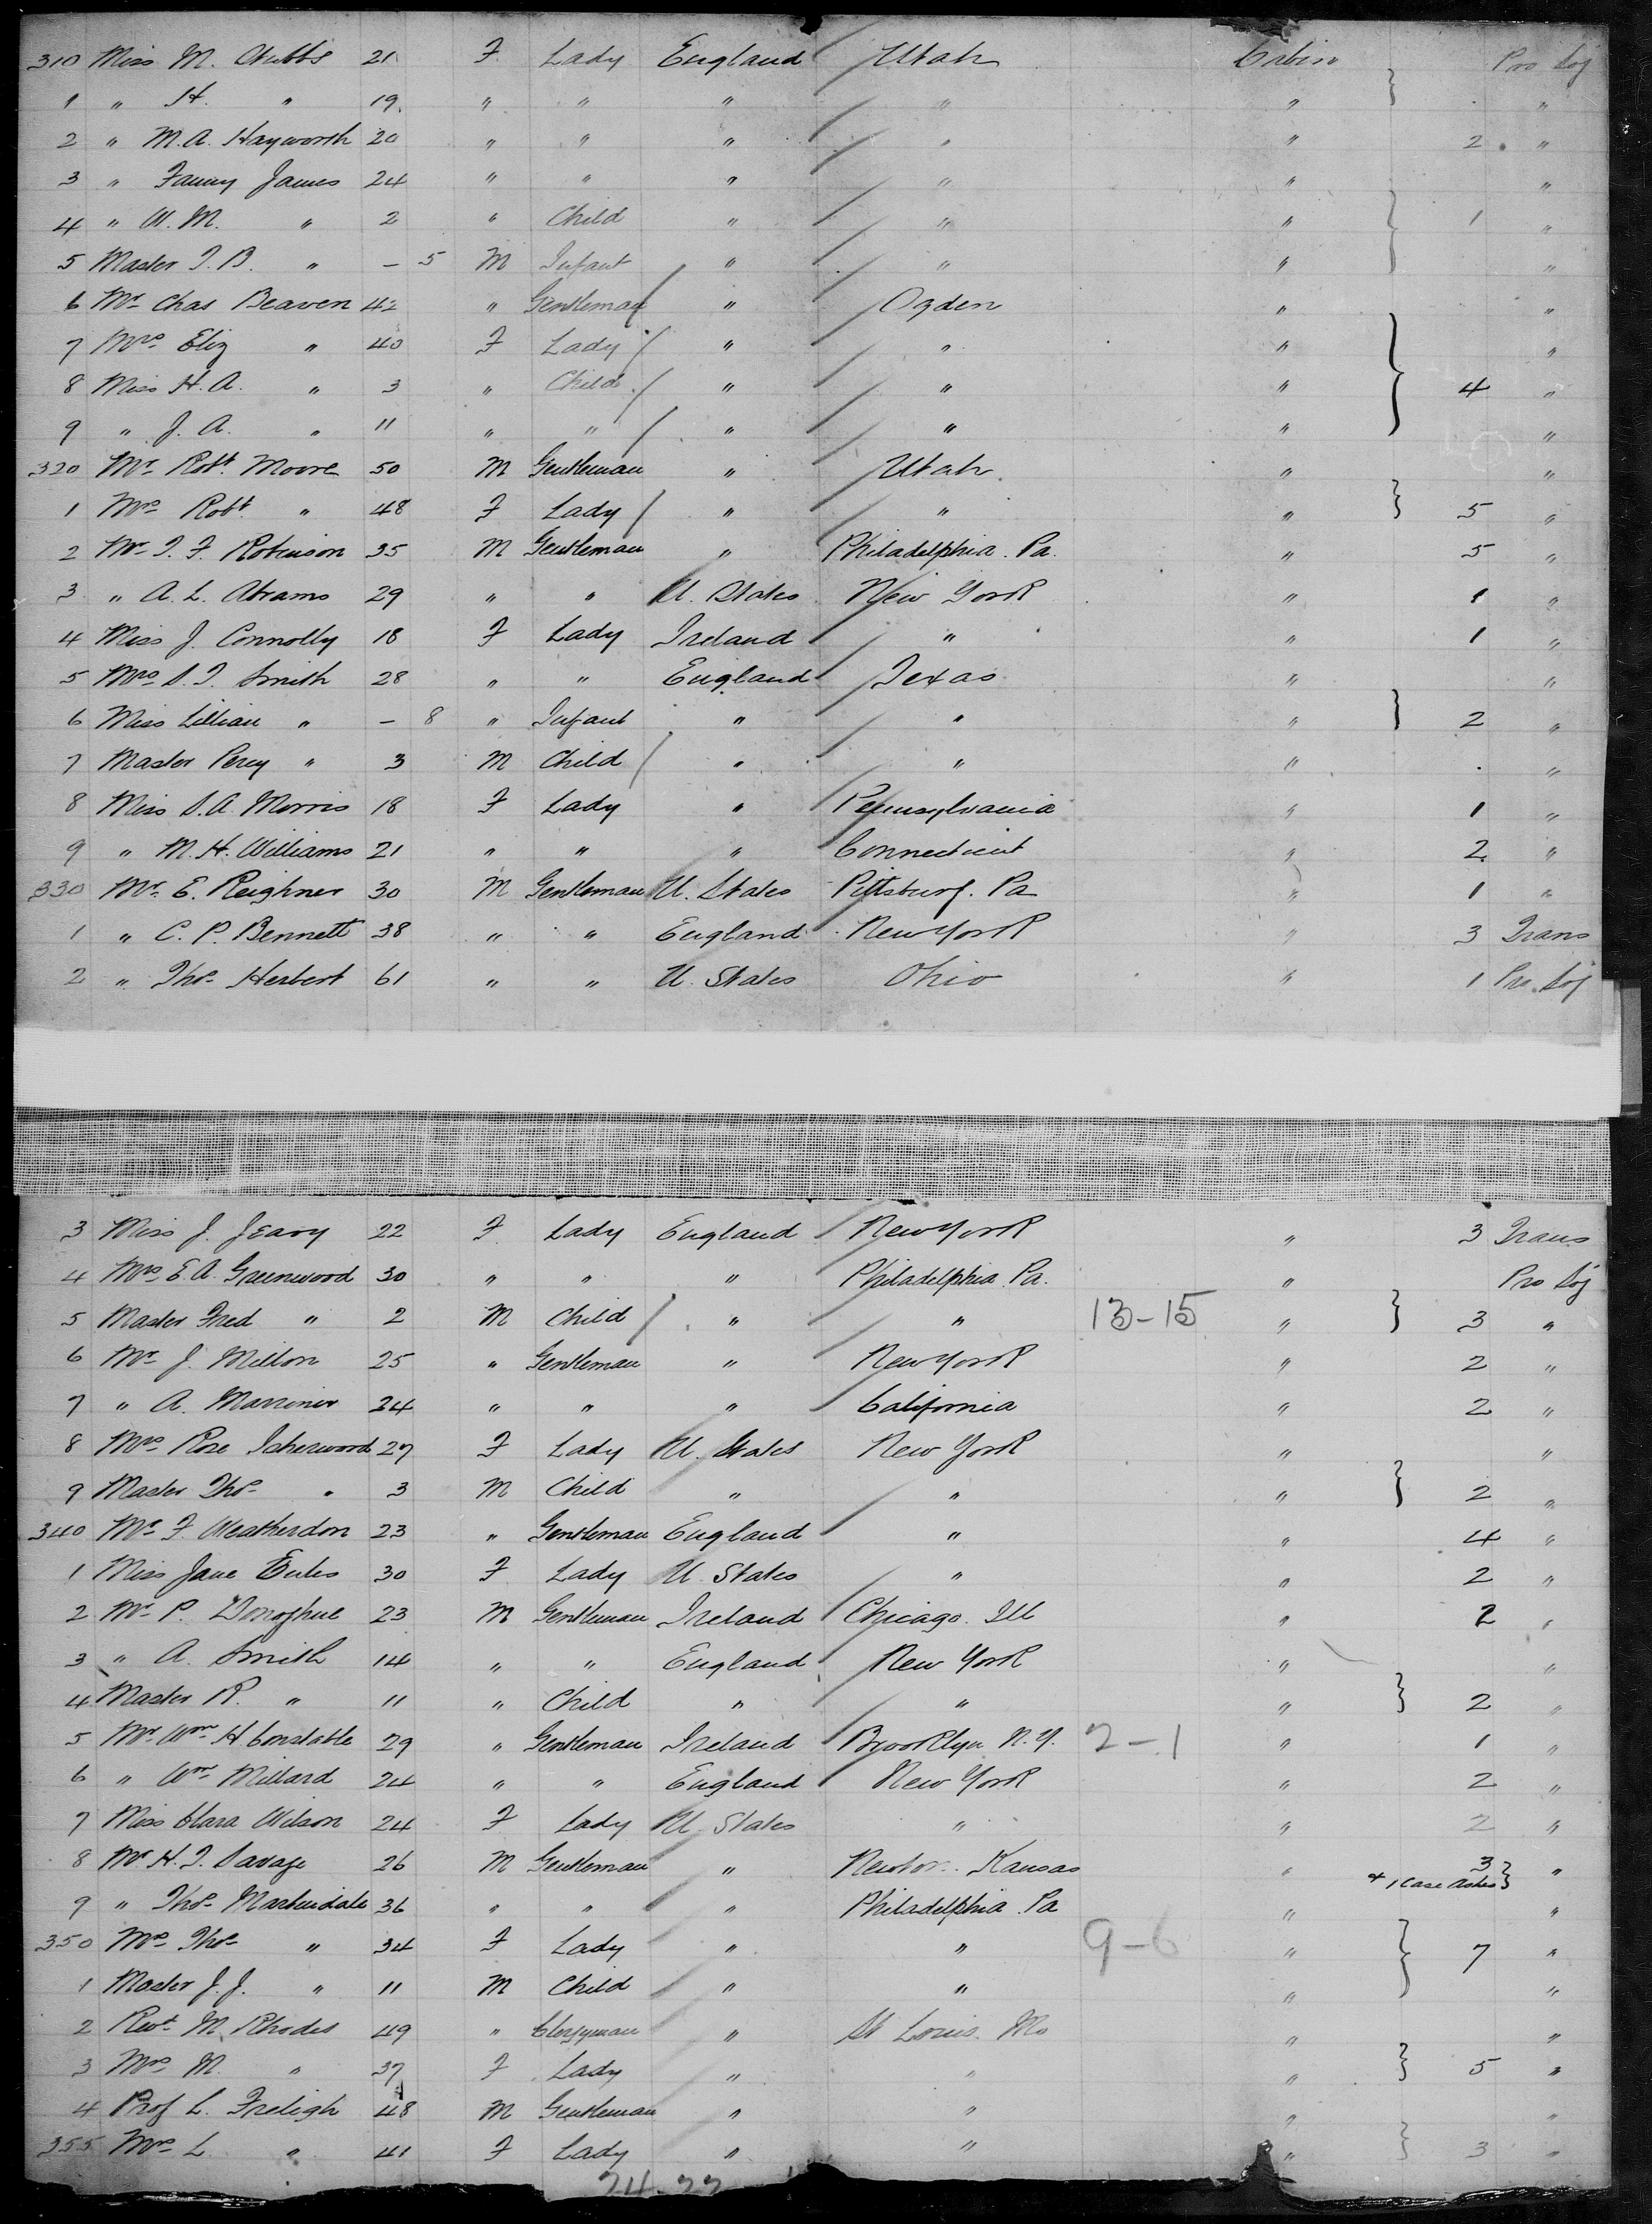 310 Miss M. Chubbs 21 F. Lady England Utah Cabin Pro Soj
1 " H. " 19 " " " " " "
2 " M.A. Hayworth 20 " " " " " 2 "
3 " Fanny James 24 " " " " " "
4 " W.M. " 2 " Child " " " 1 "
5 Master T.B. " – 5 M Infant " " " "
6 Mr Chas Beaven 42 " Gentleman " Ogden " "
7 Mrs Eliz " 40 F Lady " " " "
8 Miss H.A. " 3 " Child " " " 4 "
9 " J.A. " 11 " " " " " "
320 Mr Robt Moore 50 M Gentleman " Utah " "
1 Mrs Robt " 48 F Lady " " " 5 "
2 Mr T.F. Robinson 35 M Gentleman " Philadelphia. Pa. " 5 "
3 " A.L. Abrams 29 " " U. States New York " 1 "
4 Miss J. Connolly 18 F Lady Ireland " " 1 "
5 Mrs S.T. Smith 28 " " England Texas " "
6 Miss Lillian " – 8 " Infant " " " 2 "
7 Master Percy " 3 M Child " " " . "
8 Miss S.A. Morris 18 F Lady " Pennsylvania " 1 "
9 " M.H. Williams 21 " " " Connecticut " 2 "
330 Mr E. Reighner 30 M Gentleman U. States Pittsburg. Pa " 1 "
1 " C.P. Bennett 38 " " England New York " 3 Trans
2 " Thos Herbert 61 " " U. States Ohio " 1 Pro. Soj
3 Miss J. Jeavy 22 F. Lady England New York " 3 Trans
4 Mrs E.A. Greenwood 30 " " " Philadelphia. Pa. " Pro Soj
5 Master Fred " 2 M Child " " 13-15 " 3 "
6 Mr J. Millon 25 " Gentleman " New York " 2 "
7 " A. Marriner 24 " " " California " 2 "
8 Mrs Rose Isherwood 27 F Lady U. States New York " "
9 Master Thos " 3 M Child " " " 2 "
340 Mr F. Weatherdon 23 " Gentleman England " " 4 "
1 Miss Jane Eules 30 F Lady U. States " " 2 "
2 Mr P. Donoghue 23 M Gentleman Ireland Chicago. Ill " 2 "
3 " A. Smith 14 " " England New York " "
4 Master R. " 11 " Child " " " 2 "
5 Mr Wm H Constable 29 " Gentleman Ireland Brooklyn N.Y. 2-1 " 1 "
6 " Wm Millard 24 " " England New York " 2 "
7 Miss Clara Wilson 24 F Lady U. States " " 2 "
8 Mr H.T. Savage 26 M Gentleman " Newton. Kansas " 3 "
+ 1 Case
9 " Thos Martindale 36 " " " Philadelphia. Pa " "
350 Mrs Thos " 34 F Lady " " 9-6 " 7 "
1 Master J.J. " 11 M Child " " " "
2 Revd M. Rhodes 49 " Clergyman " St Louis. Mo " "
3 Mrs M. " 37 F Lady " " " 5 "
4 Prof L. Freligh 48 M Gentleman " " " "
355 Mrs L. " 41 F Lady " " " 3 "